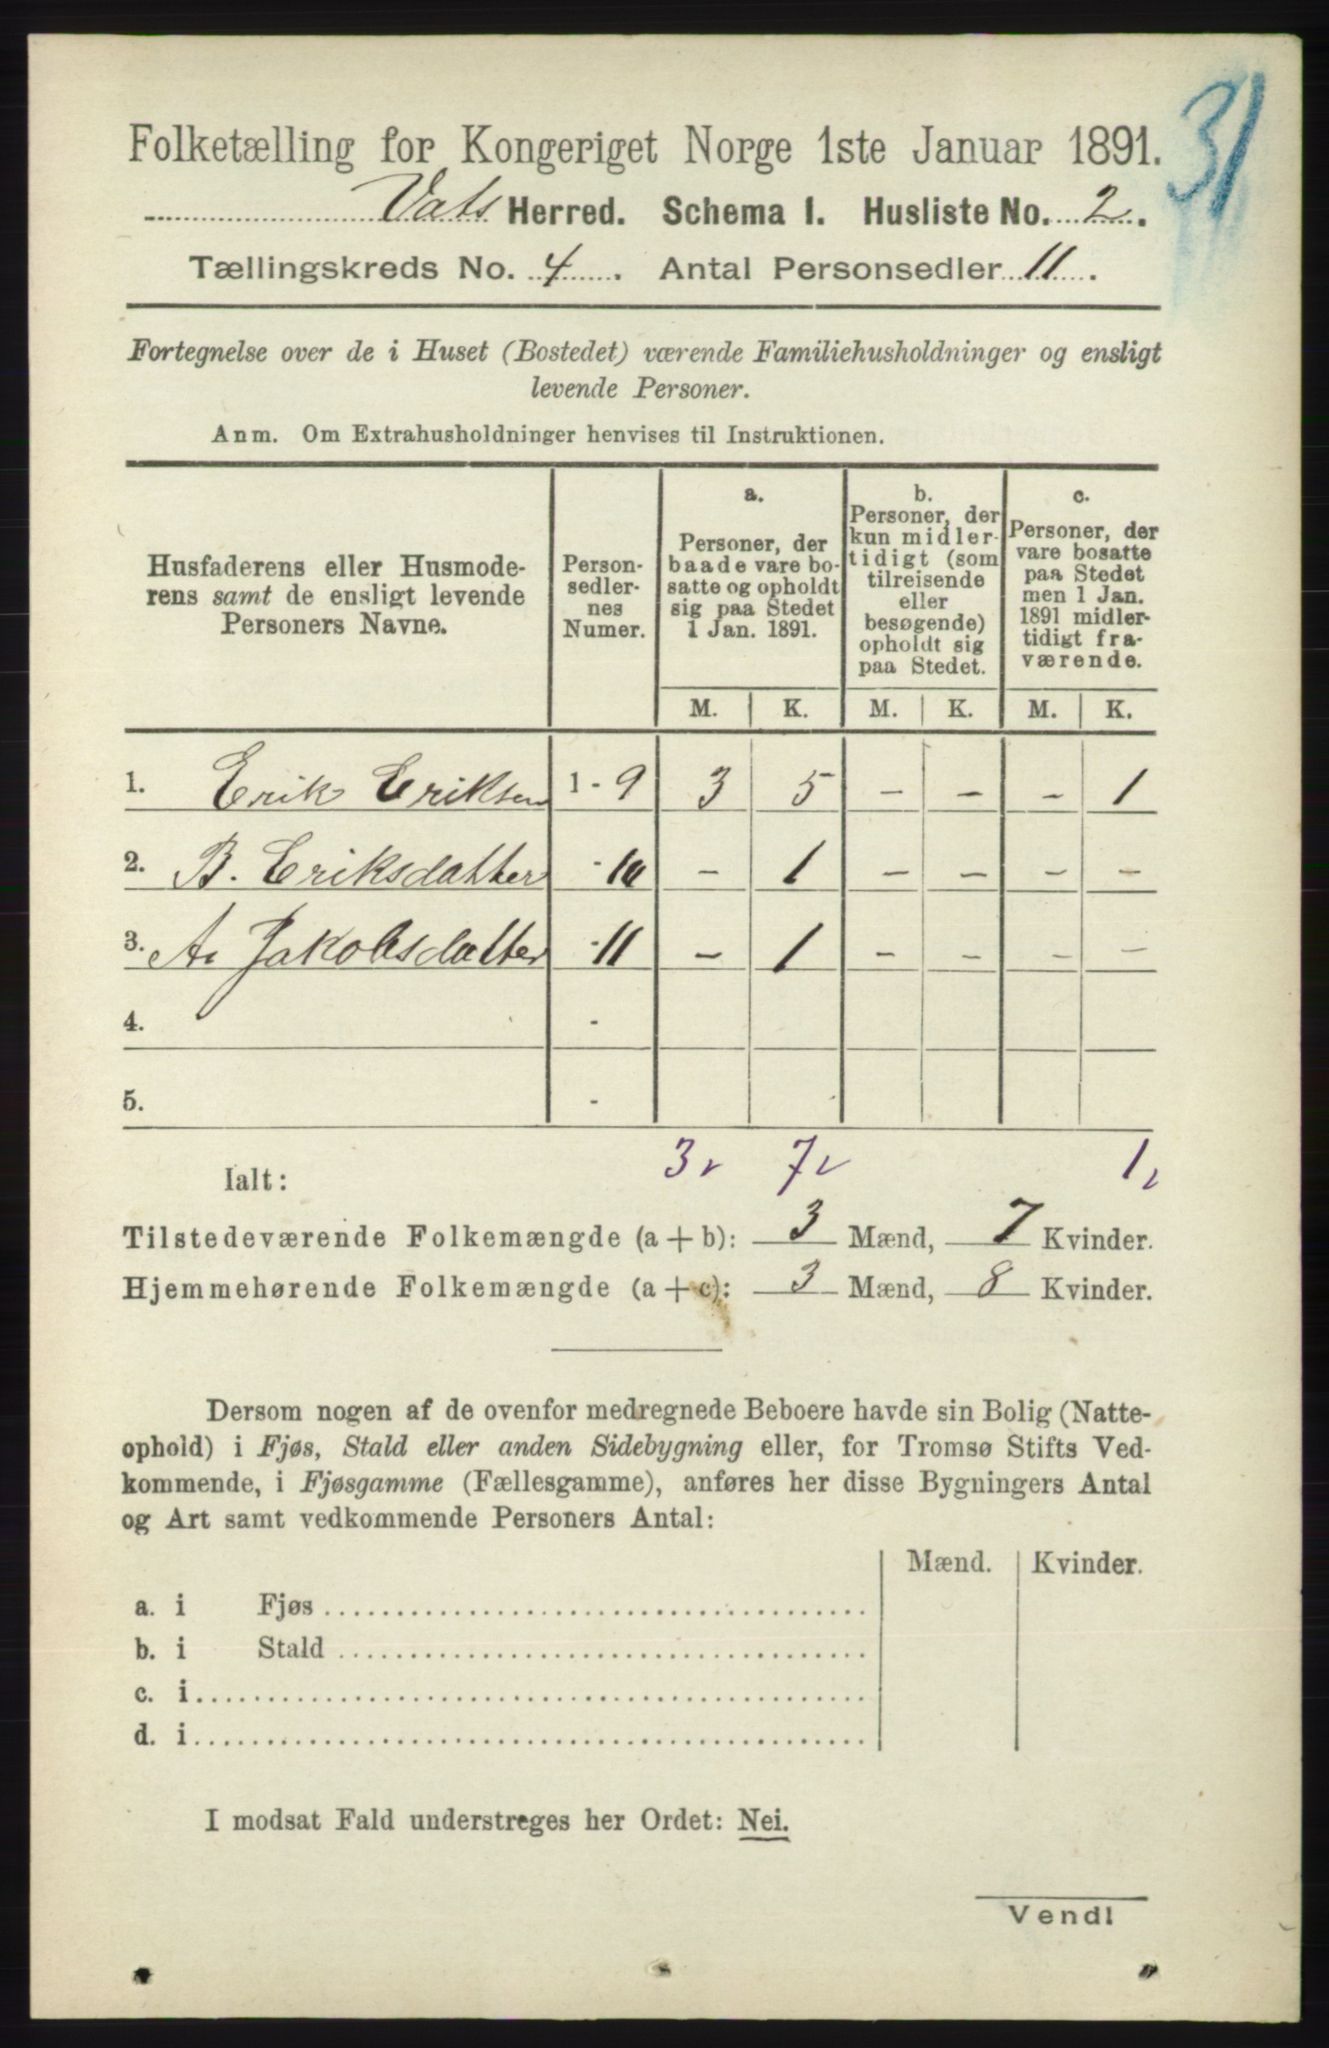 31
Folketælling for Kongeriget Norge 1ste Januar 1891.
Vats Herred. Schema I. Husliste No. 2.
Tællingskreds No. 4. Antal Personsedler 11.
Fortegnelse over de i Huset (Bostedet) værende Familiehusholdninger og ensligt
levende Personer.
Anm. Om Extrahusholdninger henvises til Instruktionen.
Husfaderens eller Husmode-
rens samt de ensligt levende
Personers Navne.
Person-
sedler-
nes
Numer.
a.
Personer, der
baade vare bo-
satte og opholdt
sig paa Stedet
1 Jan. 1891.
b.
Personer, der
kun midler-
tidigt (som
tilreisende
eller
besøgende)
opholdt sig
paa Stedet.
c.
Personer, der
vare bosatte
paa Stedet
men 1 Jan.
1891 midler-
tidigt fra-
værende.
M. K. M. K. M. K.
1. Erik Eriksen 1 - 9 3 5 - - - 1
2. B. Eriksdatter - 10 - 1 - - - -
3. A. Jakobsdatter - 11 - 1 - - - -
4. -
5. -
Ialt: 3 7 1
Tilstedeværende Folkemængde (a + b): 3 Mænd, 7 Kvinder.
Hjemmehørende Folkemængde (a + c): 3 Mænd, 8 Kvinder.
Dersom nogen af de ovenfor medregnede Beboere havde sin Bolig (Natte-
ophold) i Fjøs, Stald eller anden Sidebygning eller, for Tromsø Stifts Ved-
kommende, i Fjøsgamme (Fællesgamme), anføres her disse Bygningers Antal
og Art samt vedkommende Personers Antal:
Mænd. Kvinder.
a. i Fjøs
b. i Stald
c. i
d. i
I modsat Fald understreges her Ordet: Nei.
Vend!